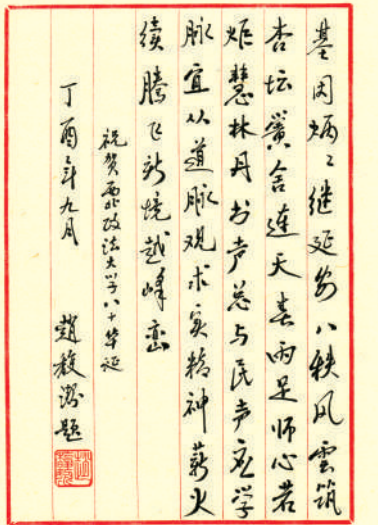 基因炳〻继延安八秩风雲筑
杏坛黉舍连天春雨足师心若
炬慧林丹书声总与民声应学
脉宜从道脉观求实精神薪火
续腾飞新境越峰峦
祝贺西北政法大学八十华诞
丁酉年九月 趙馥潔题